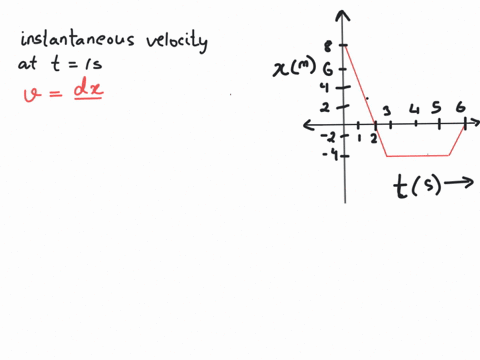 instantaneous velocity
at t = 1s
v = dx
x(m)
8
6
4
2
-2
-4
1 2 3 4 5 6
t(s)→